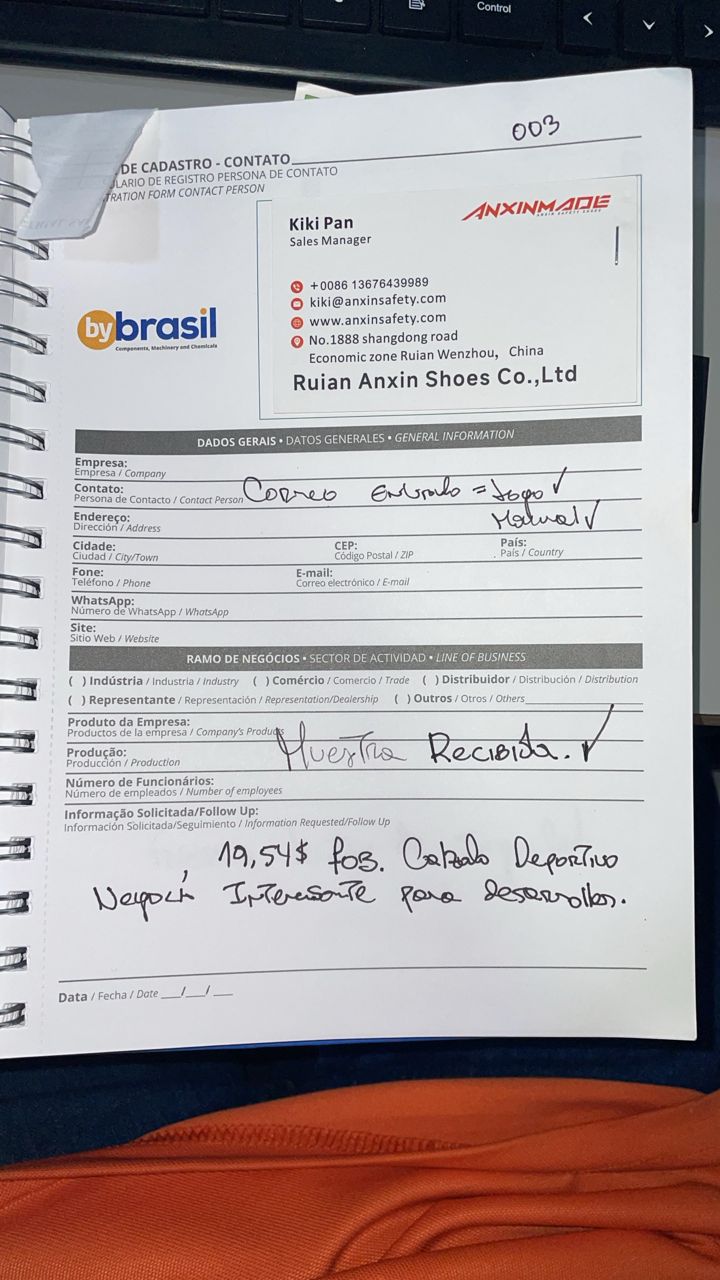 Control
003
DE CADASTRO - CONTATO
ULARIO DE REGISTRO PERSONA DE CONTATO
TRATION FORM CONTACT PERSON
ANXINMADE
ANXIN SAFETY SHOES
Kiki Pan
Sales Manager
+0086 13676439989
kiki@anxinsafety.com
www.anxinsafety.com
No.1888 shangdong road
Economic zone Ruian Wenzhou, China
Ruian Anxin Shoes Co.,Ltd
bybrasil
Components, Machinery and Chemicals
DADOS GERAIS • DATOS GENERALES • GENERAL INFORMATION
Empresa:
Empresa / Company
Contato:
Persona de Contacto / Contact Person
Correo Enviado = Logo ✓
Manual ✓
Endereço:
Dirección / Address
Cidade:
Ciudad / City/Town
CEP:
Código Postal / ZIP
País:
País / Country
Fone:
Teléfono / Phone
E-mail:
Correo electrónico / E-mail
WhatsApp:
Número de WhatsApp / WhatsApp
Site:
Sitio Web / Website
RAMO DE NEGÓCIOS • SECTOR DE ACTIVIDAD • LINE OF BUSINESS
( ) Indústria / Industria / Industry ( ) Comércio / Comercio / Trade ( ) Distribuidor / Distribución / Distribution
( ) Representante / Representación / Representation/Dealership ( ) Outros / Otros / Others
Produto da Empresa:
Productos de la empresa / Company's Products
Muestra Recibida. ✓
Produção:
Producción / Production
Número de Funcionários:
Número de empleados / Number of employees
Informação Solicitada/Follow Up:
Información Solicitada/Seguimiento / Information Requested/Follow Up
19,54$ fob. Calzado Deportivo
Interesante para desarrollar.
Data / Fecha / Date __/__/__